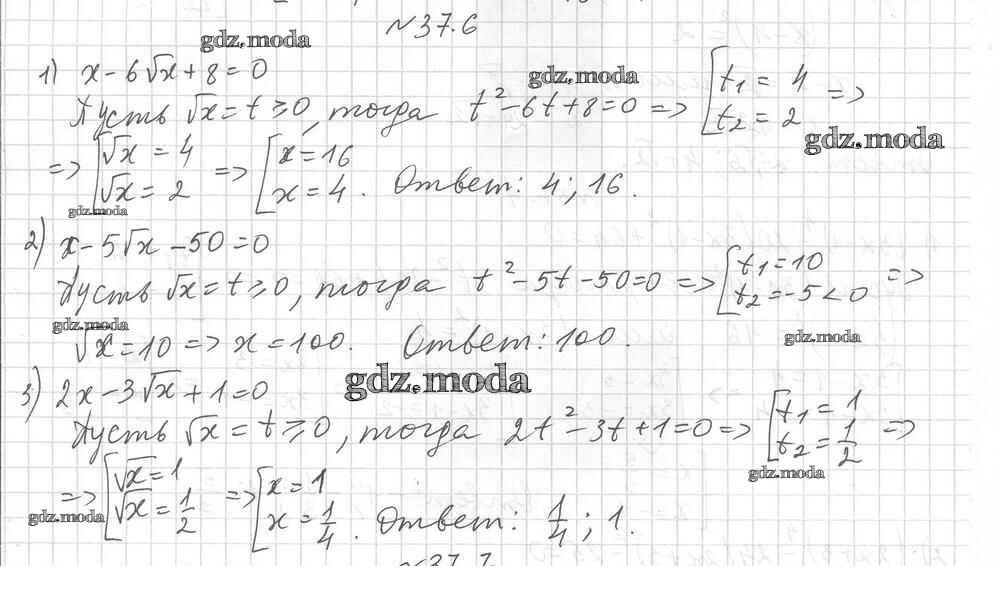 №37.6
gdz.moda
1) x - 6√x + 8 = 0
gdz.moda
Пусть √x = t ≥ 0, тогда t² - 6t + 8 = 0 => [t₁ = 4 =>
t₂ = 2
gdz.moda
=> [√x = 4 => [x = 16
√x = 2 x = 4. Ответ: 4; 16.
gdz.moda
2) x - 5√x - 50 = 0
Пусть √x = t ≥ 0, тогда t² - 5t - 50 = 0 => [t₁ = 10 =>
t₂ = -5 < 0
gdz.moda
√x = 10 => x = 100. Ответ: 100.
gdz.moda
gdz.moda
3) 2x - 3√x + 1 = 0
Пусть √x = t ≥ 0, тогда 2t² - 3t + 1 = 0 => [t₁ = 1 =>
t₂ = 1/2
gdz.moda
=> [√x = 1 => [x = 1
√x = 1/2 x = 1/4. Ответ: 1/4; 1.
gdz.moda